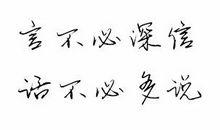 言不必深信
话不必多说